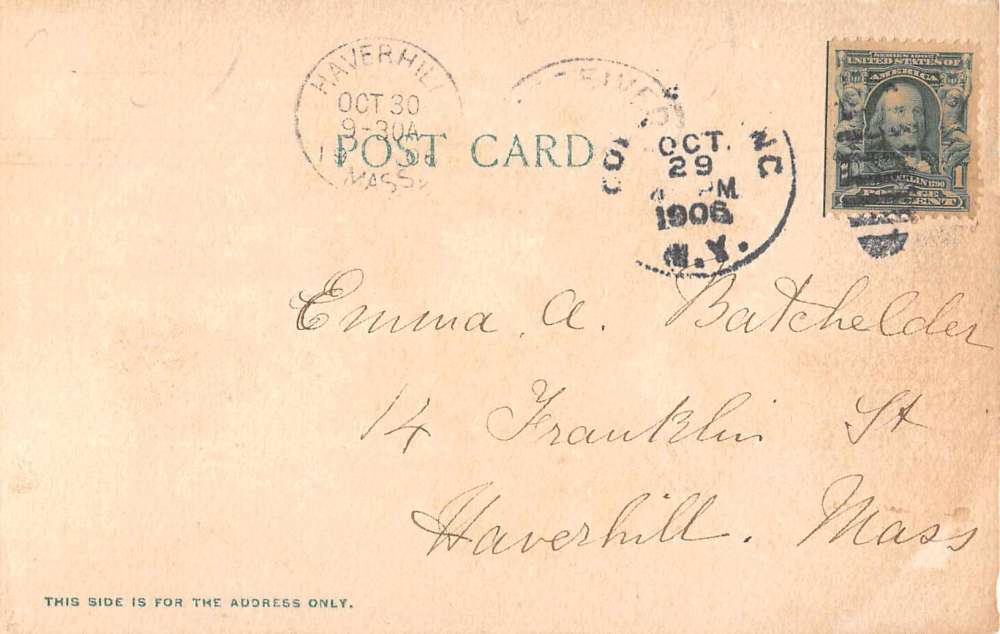 HAVERHILL
OCT 30
9-30A
MASS
OCT.
29
PM
1906
N.Y.
SERIES 1902
UNITED STATES OF
AMERICA
1
POSTAGE
CENT
POST CARD
Emma A. Batchelder
14 Franklin St
Haverhill. Mass
THIS SIDE IS FOR THE ADDRESS ONLY.